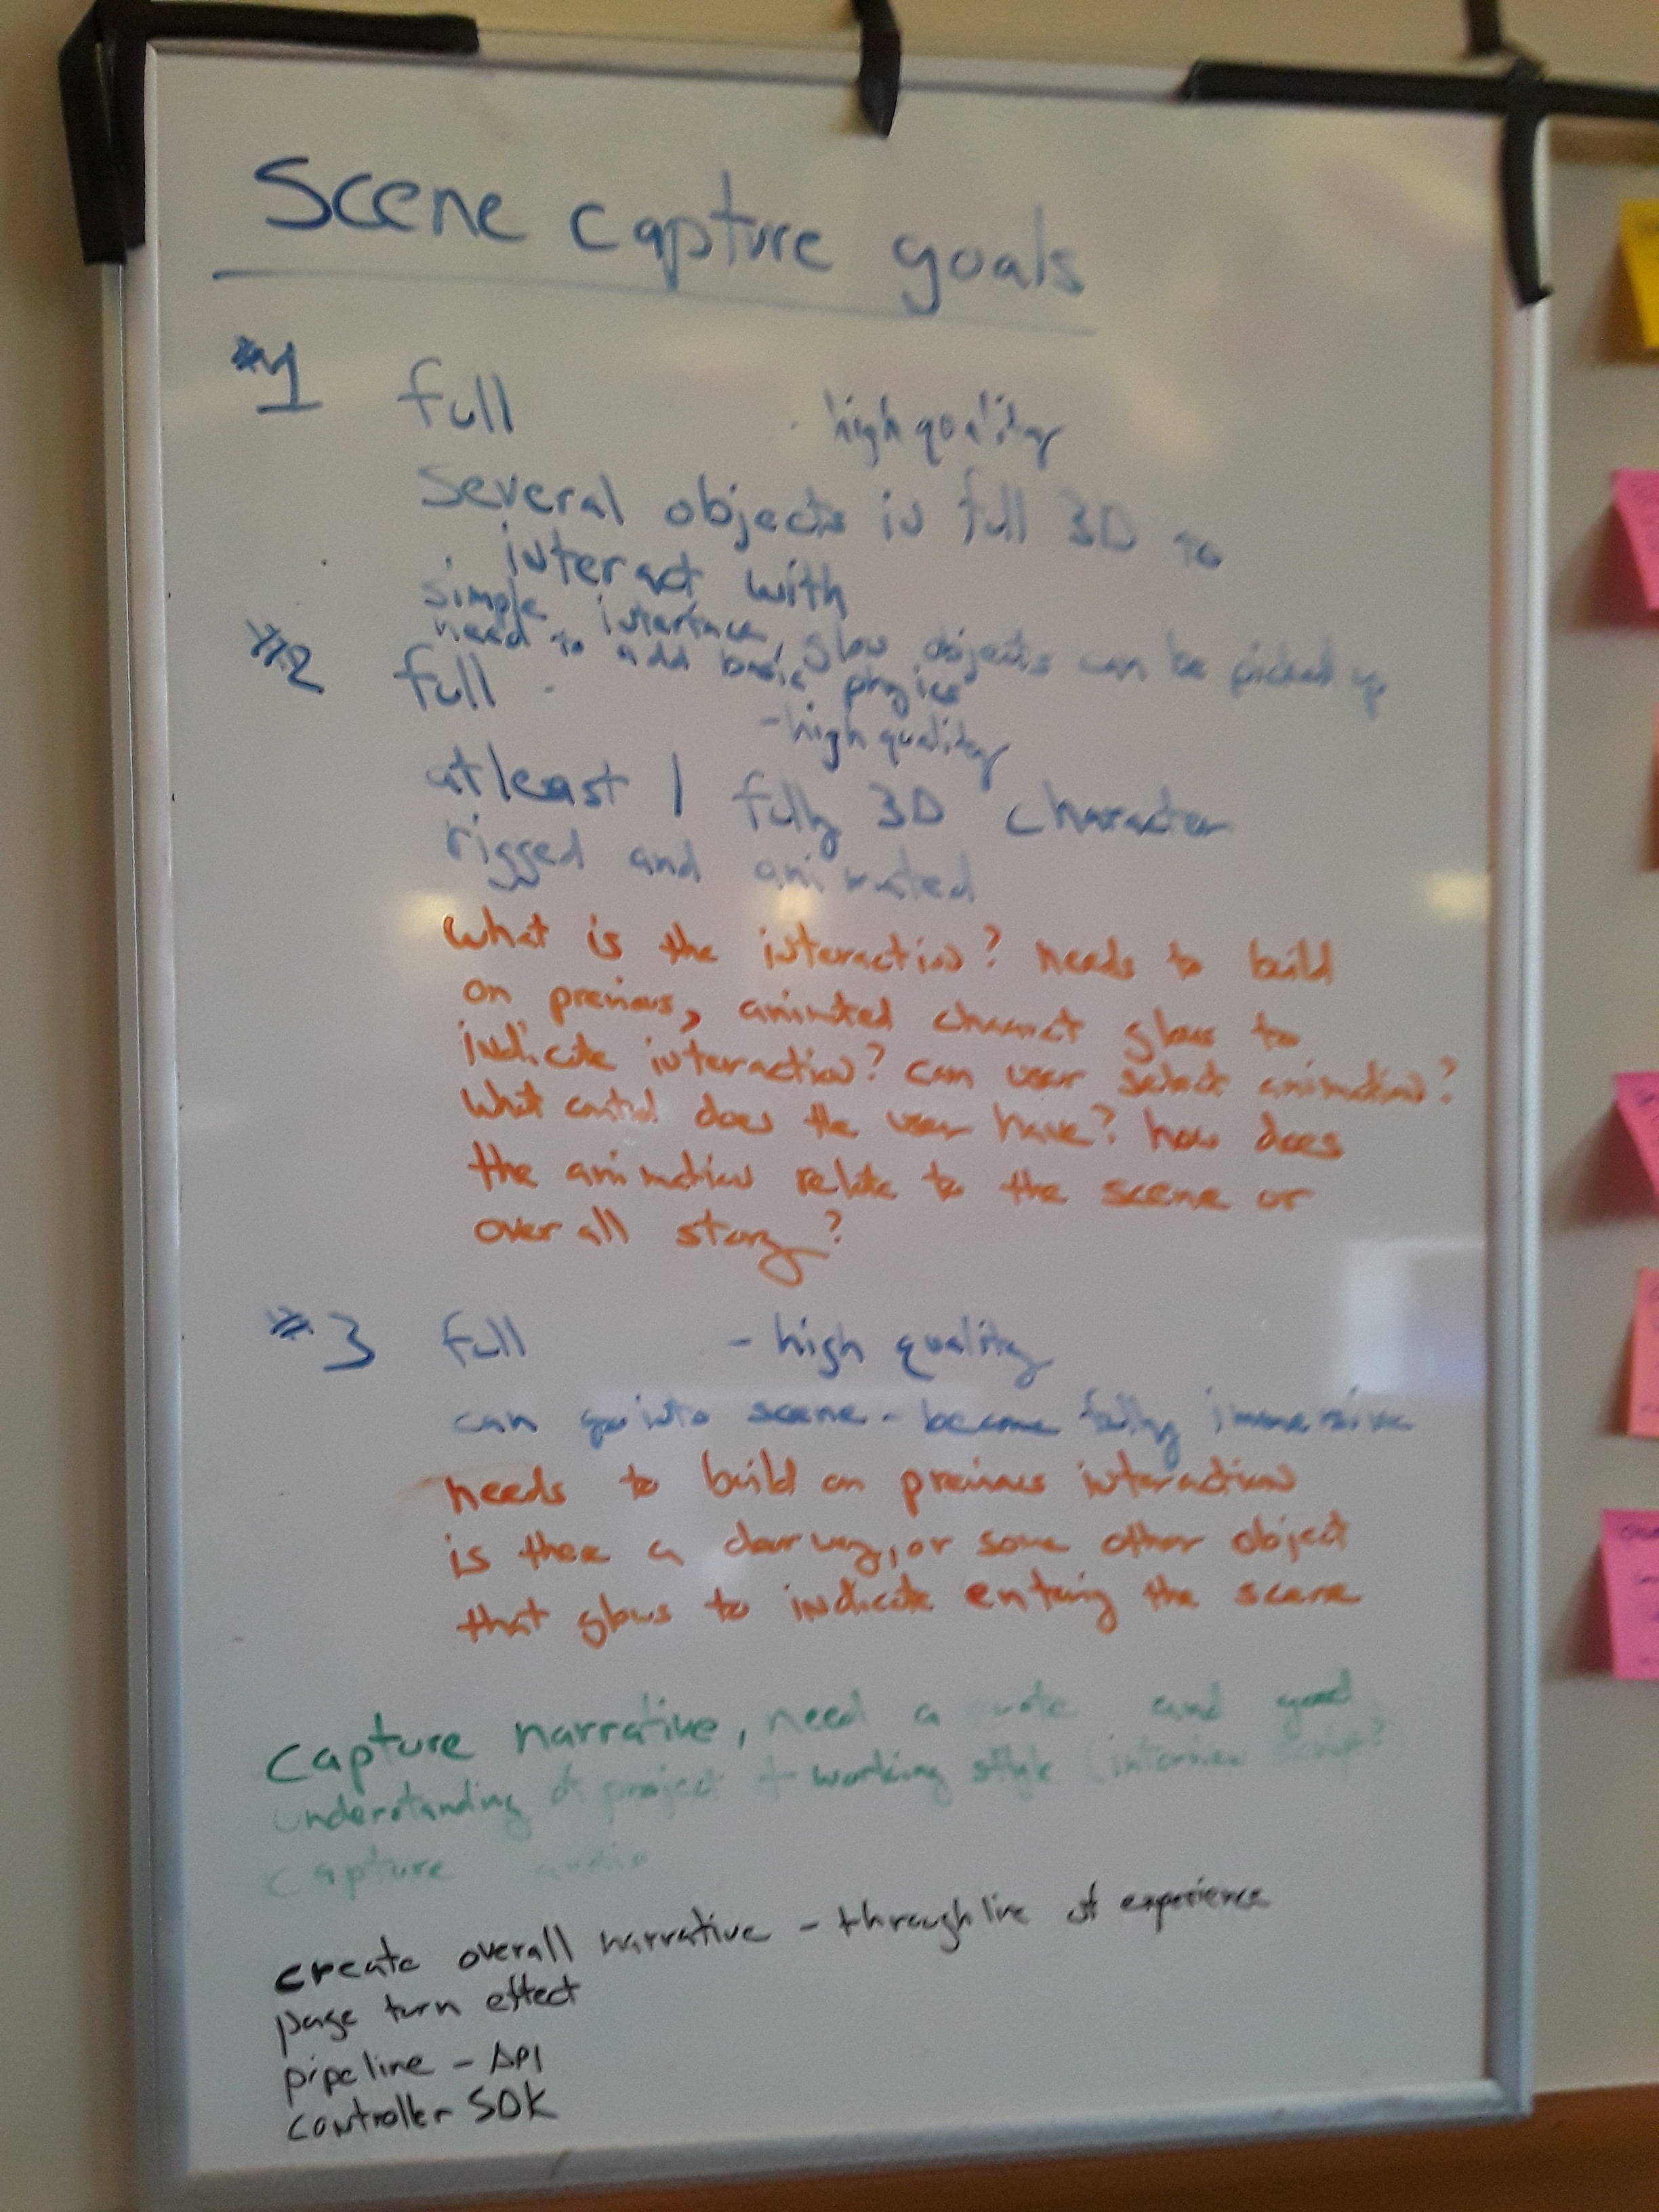 Scene capture goals
#1 full - high quality
Several objects in full 3D to
interact with
simple interface, glow objects can be picked up
need to add basic physics
#2 full - high quality
atleast 1 fully 3D character
rigged and animated
What is the interaction? needs to build
on previous, animated charact glows to
indicate interaction? can user select animation?
What control does the user have? how does
the animation relate to the scene or
over all story?
#3 full - high quality
can go into scene - become fully immersive
needs to build on previous interaction
is there a door way, or some other object
that glows to indicate entering the scene
Capture narrative, need a and good
understanding of project + working style (interview script?
capture audio
create overall narrative - through line of experience
page turn effect
pipeline - API
controller SDK